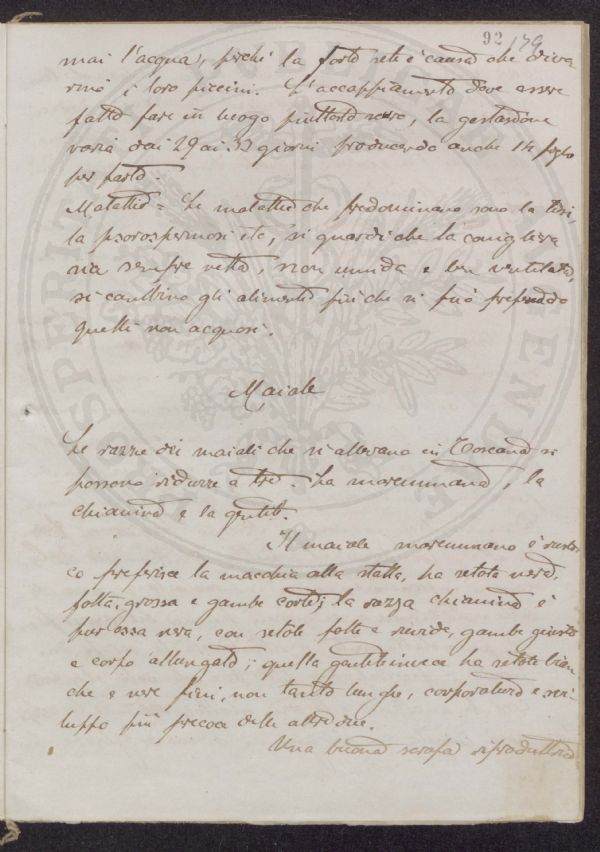 92 179
mai l'acqua, perché la forte sete è causa che divo
rino i loro piccini. L'accoppiamento deve essere
fatto fare in luogo piuttosto scuro, la gestazione
varia dai 29 ai 32 giorni producendo anche 14 figli
per parto.
Malattie = Le malattie che predominano sono la tisi,
la psorospermosi etc, si guardi che la conigliera
sia sempre netta, non umida e ben ventilata,
si cambino gli alimenti più che si può preferendo
quelli non acquosi.
Maiale
Le razze dei maiali che si allevano in Toscana si
possono ridurre a tre. La maremmana, la
chianina e la gentile.
Il maiale maremmano è rusti-
co preferisce la macchia alla stalla, ha setole nere
folta, grossa e gambe corte; la razza chianina è
pur essa nera, con setole folte e ruvide, gambe giuste
e corpo allungato; quella gentile invece ha setole bian-
che e nere fini, non tanto lunghe, corporatura e svi-
luppo più precoce delle altre due.
Una buona scrofa riproduttrice
PROSPERITATI PUBLICAE AUGENDAE